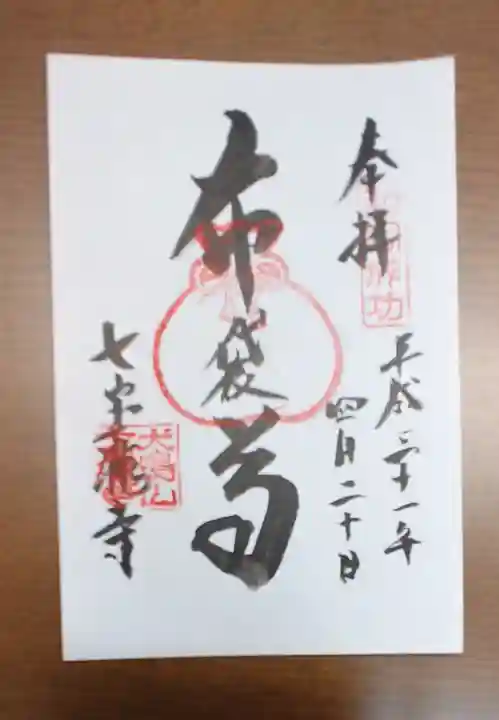 奉拝
平成三十一年
四月二十日
布袋尊
七宝瀧寺
犬鳴山